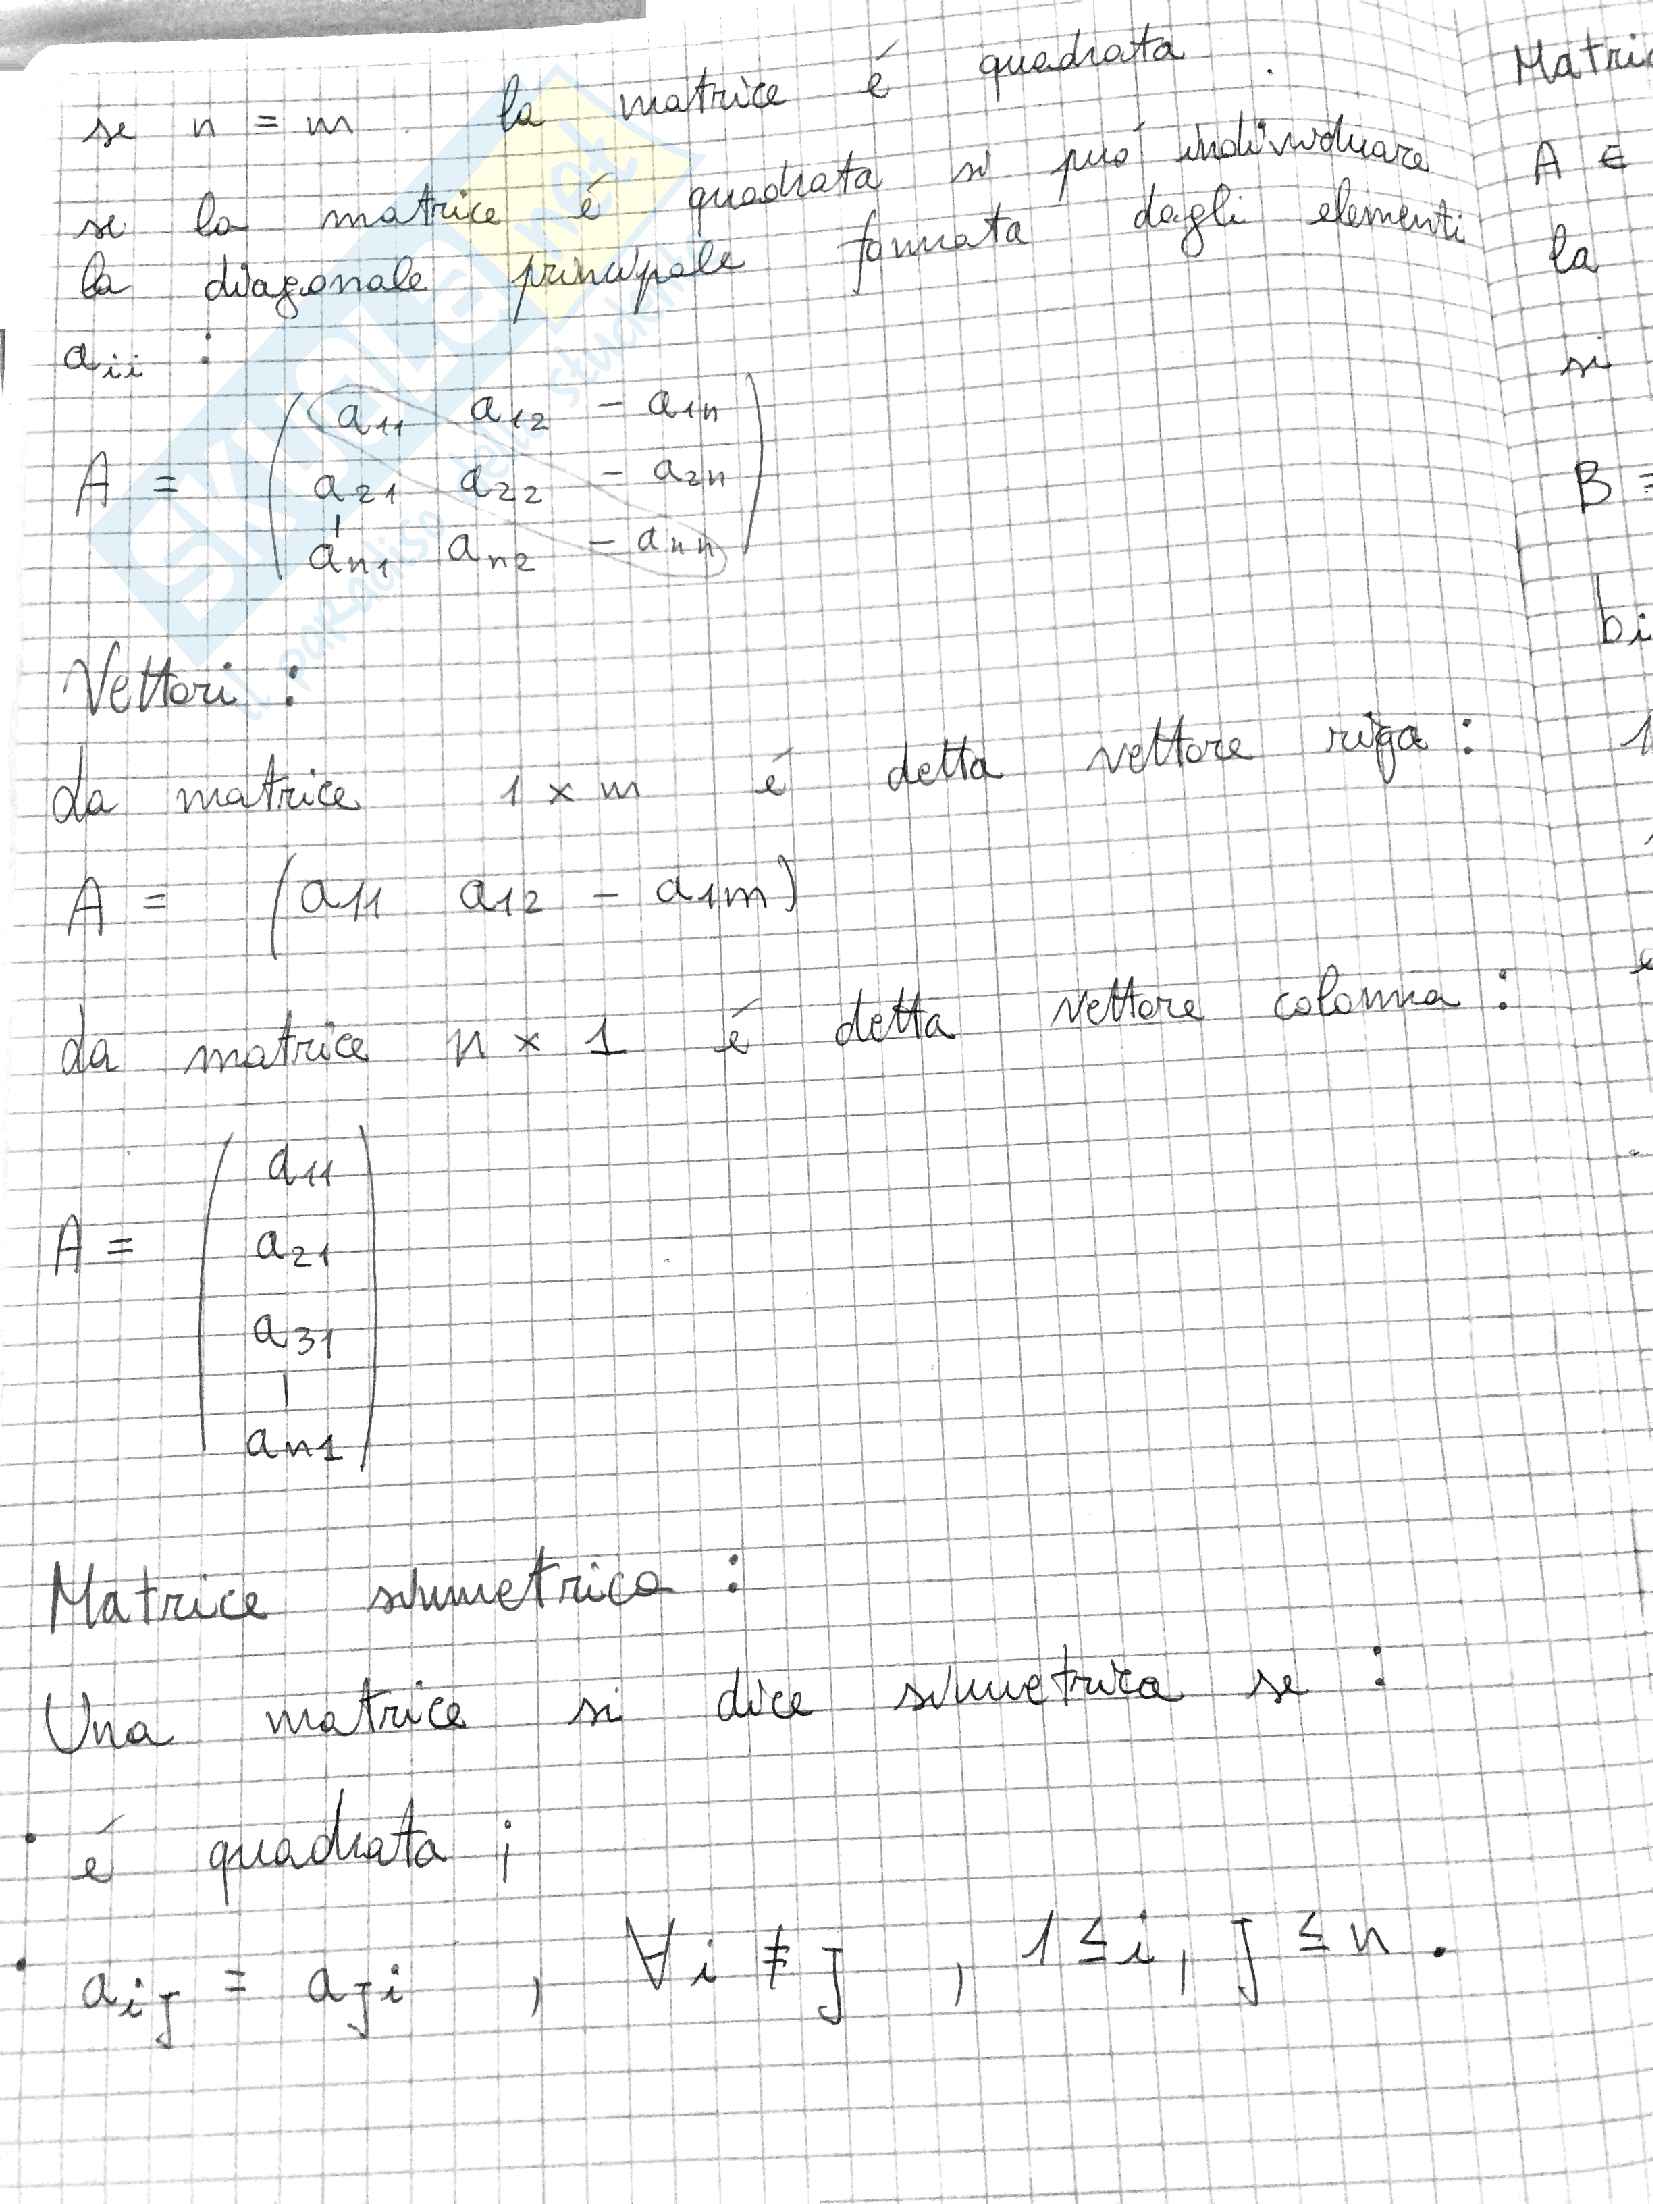 se n = m la matrice é quadrata.
se la matrice é quadrata si puó individuare
la diagonale principale formata dagli elementi
aii :
A = ( a11 a12 – a1n
a21 a22 – a2n
an1 an2 – ann )
Vettori :
La matrice 1 × m é detta vettore riga :
A = (a11 a12 – a1m)
La matrice n × 1 é detta vettore colonna :
A = ( a11
a21
a31
|
an1 )
Matrice simmetrica :
Una matrice si dice simmetrica se :
• é quadrata ;
• aij = aji , ∀i ≠ j , 1 ≤ i, j ≤ n .
Matric
A ∈
la
si
B =
bi
SKUOLA.net
il paradiso dello studente